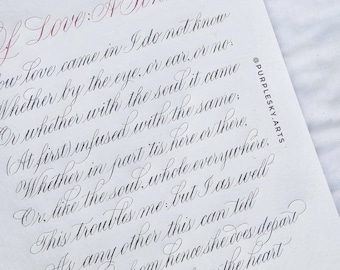 Of Love: A Son
How love came in I do not know
Whether by the eye, or ear, or no:
Or whether with the soul it came
(At first) infused with the same:
Whether in part 'tis here or there,
Or, like the soul, whole everywhere,
This troubles me: but I as well
As any other this can tell
from hence she does depart
the heart
@PURPLESKY.ARTS